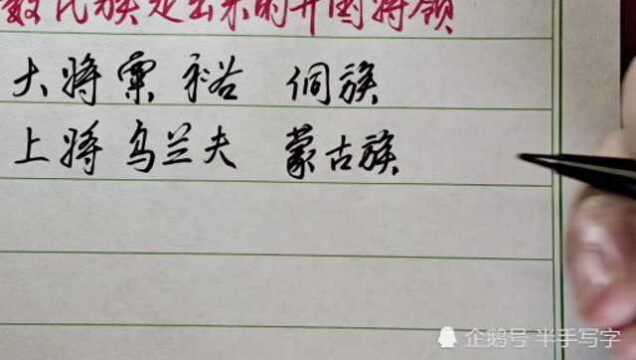 数民族走出来的开国将领
大将粟裕 侗族
上将乌兰夫 蒙古族
企鹅号 半手写字